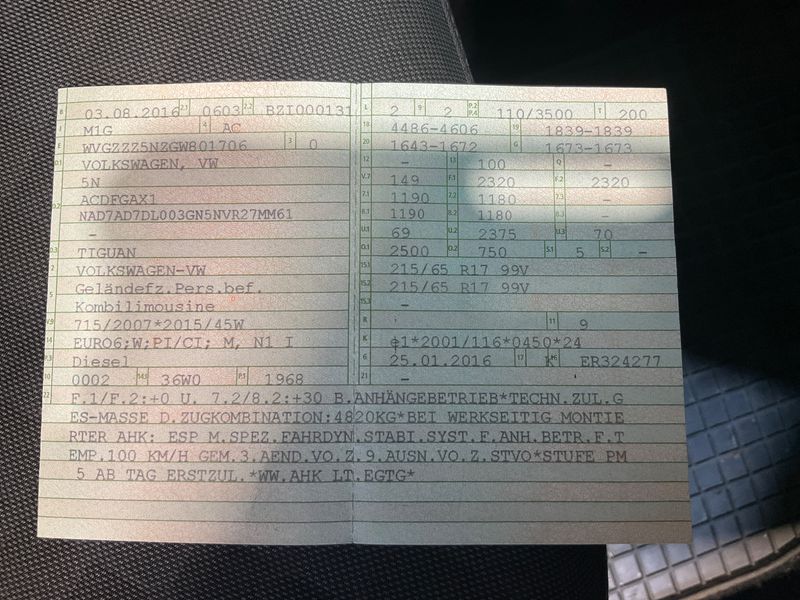 B 03.08.2016 2.1 0603 2.2 BZI000131
J M1G 4 AC
E WVGZZZ5NZGW801706 3 0
D.1 VOLKSWAGEN, VW
5N
D.2 ACDFGAX1
NAD7AD7DL003GN5NVR27MM61
-
D.3 TIGUAN
2 VOLKSWAGEN-VW
5 Geländefz.Pers.bef.
Kombilimousine
V.9 715/2007*2015/45W
14 EURO6;W;PI/CI; M, N1 I
P.3 Diesel
10 0002 14.1 36W0 P.1 1968
L 2 9 2 P.2 P.4 110/3500 T 200
18 4486-4606 19 1839-1839
20 1643-1672 G 1673-1673
12 - 13 100 Q -
V.7 149 F.1 2320 F.2 2320
7.1 1190 7.2 1180 7.3 -
8.1 1190 8.2 1180 8.3 -
U.1 69 U.2 2375 U.3 70
O.1 2500 O.2 750 S.1 5 S.2 -
15.1 215/65 R17 99V
15.2 215/65 R17 99V
15.3 -
R 11 9
K e1*2001/116*0450*24
6 25.01.2016 17 K 16 ER324277
21 -
22 F.1/F.2:+0 U. 7.2/8.2:+30 B.ANHÄNGEBETRIEB*TECHN.ZUL.G
ES-MASSE D.ZUGKOMBINATION:4820KG*BEI WERKSEITIG MONTIE
RTER AHK: ESP M.SPEZ.FAHRDYN.STABI.SYST.F.ANH.BETR.F.T
EMP.100 KM/H GEM.3.AEND.VO.Z.9.AUSN.VO.Z.STVO*STUFE PM
5 AB TAG ERSTZUL.*WW.AHK LT.EGTG*